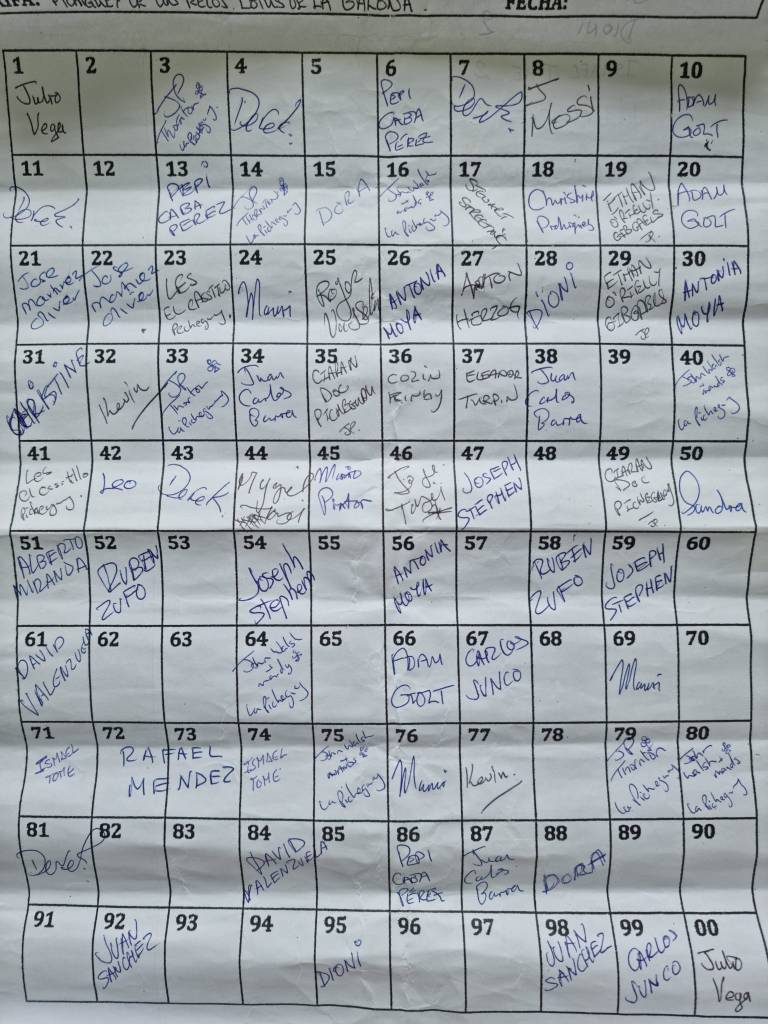 FECHA:
DIONI
1
Julio
Vega
2
3
JP
Thornton
La Picheguy
4
Derek
5
6
PEPI
CABA
PÉREZ
7
Derek
8
J
MOSSI
9
10
ADAM
GOLT
11
Derek
12
13
PEPI
CABA
PEREZ
14
JP
Thornton
La Picheguy
15
DORA
16
John Walsh
La Picheguy
17
18
Christine
19
ETHAN
O'RIELLY
JP.
20
ADAM
GOLT
21
Jose
martinez
olivier
22
Jose
martinez
olivier
23
LES
EL CASTILLO
Picheguy.
24
Mauri
25
26
ANTONIA
MOYA
27
ANTON
HERZOG
28
DIONI
29
ETHAN
O'RIELLY
JP
30
ANTONIA
MOYA
31
CHRISTINE
32
Kevin
33
JP
Thornton
La Picheguy
34
Juan
Carlos
Barra
35
CIARAN
DOC
PICHEGUY
JP.
36
COLIN
37
ELEANOR
TURPIN
38
Juan
Carlos
Barra
39
40
John Walsh
La Picheguy
41
Les
El Castillo
Picheguy.
42
Leo
43
Derek
44
45
Mario
Pintor
46
47
JOSEPH
STEPHEN
48
49
CIARAN
DOC
PICHEGUY
JP
50
Sandra
51
ALBERTO
MIRANDA
52
RUBEN
ZUFO
53
54
Joseph
Stephen
55
56
ANTONIA
MOYA
57
58
RUBÉN
ZUFO
59
JOSEPH
STEPHEN
60
61
DAVID
VALENZUELA
62
63
64
John Walsh
La Picheguy
65
66
ADAM
GOLT
67
CARLOS
JUNCO
68
69
Mauri
70
71
ISMAEL
TOME
72
73
RAFAEL
MENDEZ
74
ISMAEL
TOME
75
John Walsh
La Picheguy
76
Mauri
77
Kevin
78
79
JP
Thornton
La Picheguy
80
John
La Picheguy
81
Derek
82
83
84
DAVID
VALENZUELA
85
86
PEPI
CABA
PÉREZ
87
Juan
Carlos
Barra
88
DORA
89
90
91
92
JUAN
SANCHEZ
93
94
95
DIONI
96
97
98
JUAN
SANCHEZ
99
CARLOS
JUNCO
00
Julio
Vega